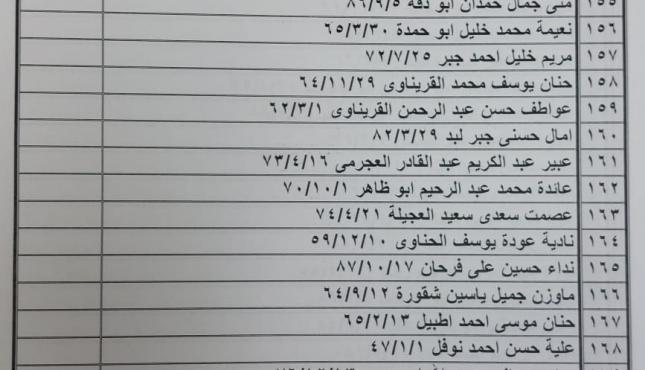 ١٥٥ منى جمال حمدان ابو دقة ٨٦/٩/٥
١٥٦ نعيمة محمد خليل ابو حمدة ٦٥/٣/٣٠
١٥٧ مريم خليل احمد جبر ٧٢/٧/٢٥
١٥٨ حنان يوسف محمد القريناوى ٦٤/١١/٢٩
١٥٩ عواطف حسن عبد الرحمن القريناوى ٦٢/٣/١
١٦٠ امال حسنى جبر لبد ٨٢/٣/٢٩
١٦١ عبير عبد الكريم عبد القادر العجرمى ٧٣/٤/١٦
١٦٢ عائدة محمد عبد الرحيم ابو ظاهر ٧٠/١٠/١
١٦٣ عصمت سعدى سعيد العجيلة ٧٤/٤/٢١
١٦٤ نادية عودة يوسف الحناوى ٥٩/١٢/١٠
١٦٥ نداء حسين على فرحان ٨٧/١٠/١٧
١٦٦ ماوزن جميل ياسين شقورة ٦٤/٩/١٢
١٦٧ حنان موسى احمد اطبيل ٦٥/٢/١٣
١٦٨ علية حسن احمد نوفل ٤٧/١/١